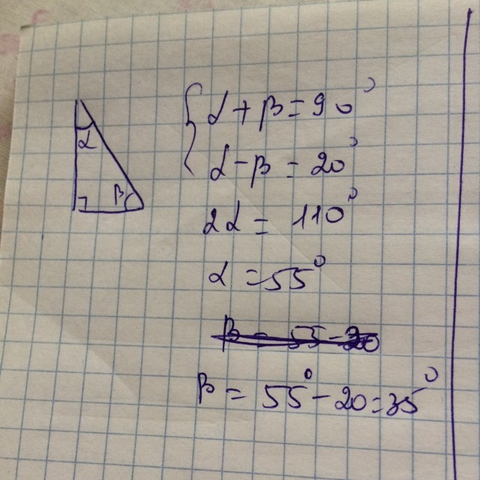 α
β
α + β = 90°
α - β = 20°
2α = 110°
α = 55°
β = 55° - 20 = 35°